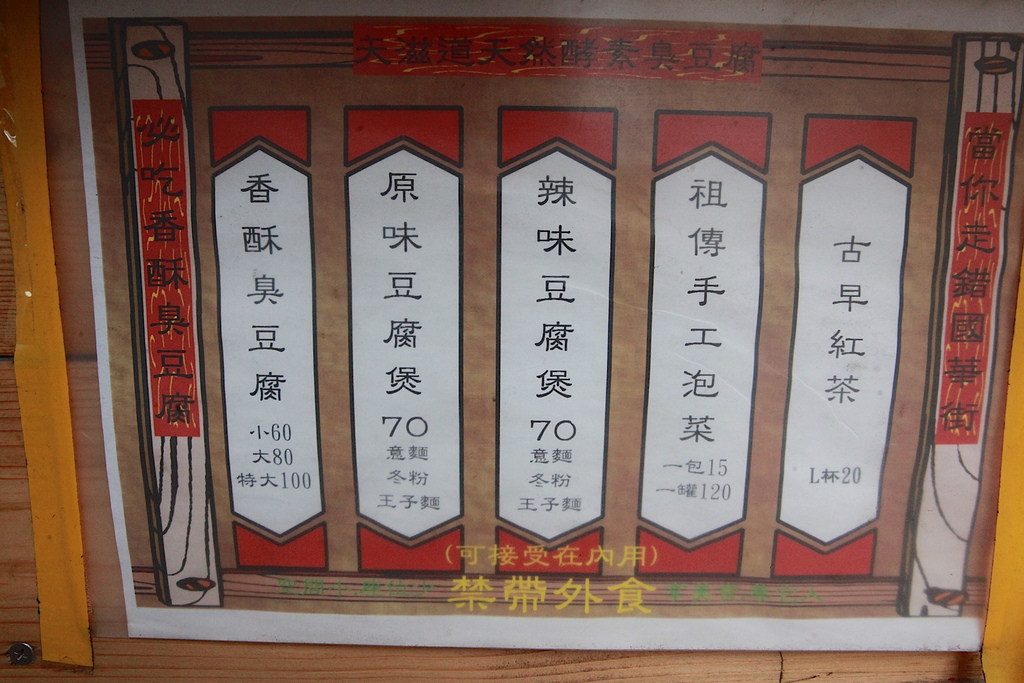 天滋道天然酵素臭豆腐
當你走錯國華街
古早紅茶
L杯20
祖傳手工泡菜
一包15
一罐120
辣味豆腐煲
70
意麵
冬粉
王子麵
原味豆腐煲
70
意麵
冬粉
王子麵
香酥臭豆腐
小60
大80
特大100
必吃香酥臭豆腐
(可接受在內用)
禁帶外食